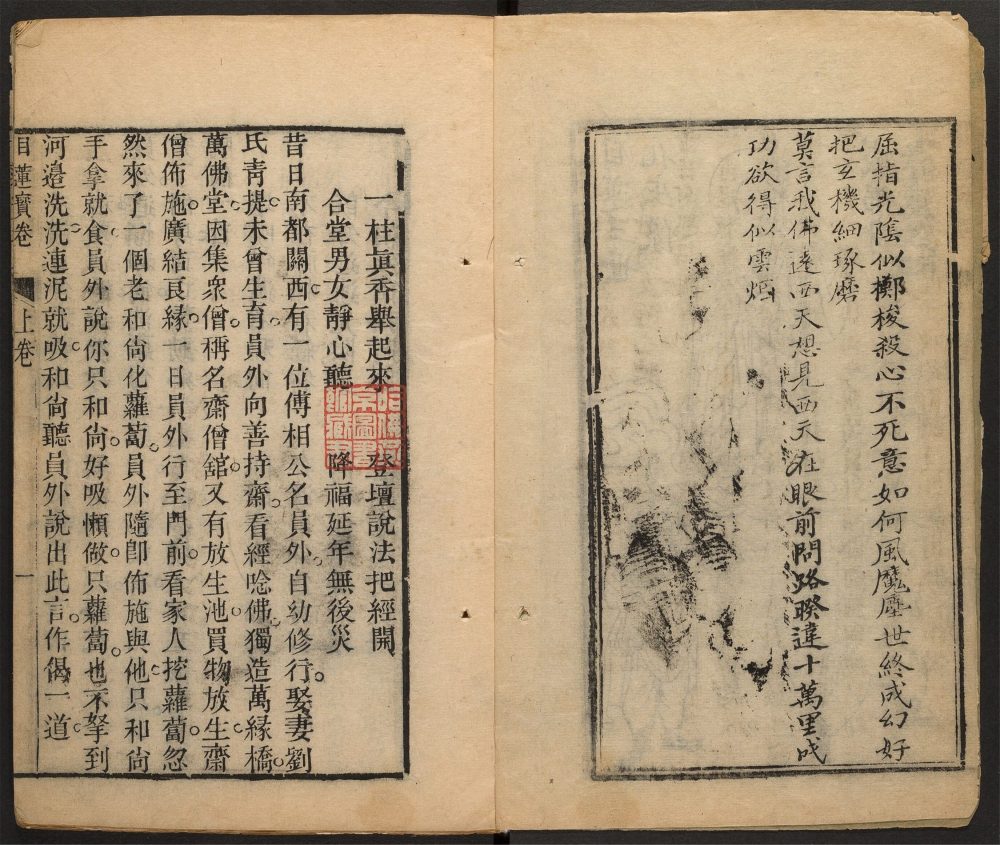 屈指光陰似梛梭殺心不死意如何風魔塵世終成幻好
把玄機細琢磨
莫言我佛遠西天想見西天在眼前問路暌違十萬里成
功欲得似雲烟
一柱眞香舉起來　登壇說法把經開
合堂男女靜心聽　降福延年無後災
昔日南都關西有一位傅相公名員外自幼修行娶妻劉
氏靑提未曾生育員外向善持齋看經唸佛獨造萬縁橋
萬佛堂因集衆僧稱名齋僧舘又有放生池買物放生齋
僧佈施廣結良緣一日員外行至門前看家人挖蘿蔔忽
然來了一個老和尙化蘿蔔員外隨卽佈施與他只和尙
手拿就食員外說你只和尙好吸懶做只蘿蔔也不拏到
河邉洗洗連泥就吸和尙聽員外說出此言作偈一道
目蓮寶卷
上卷
一